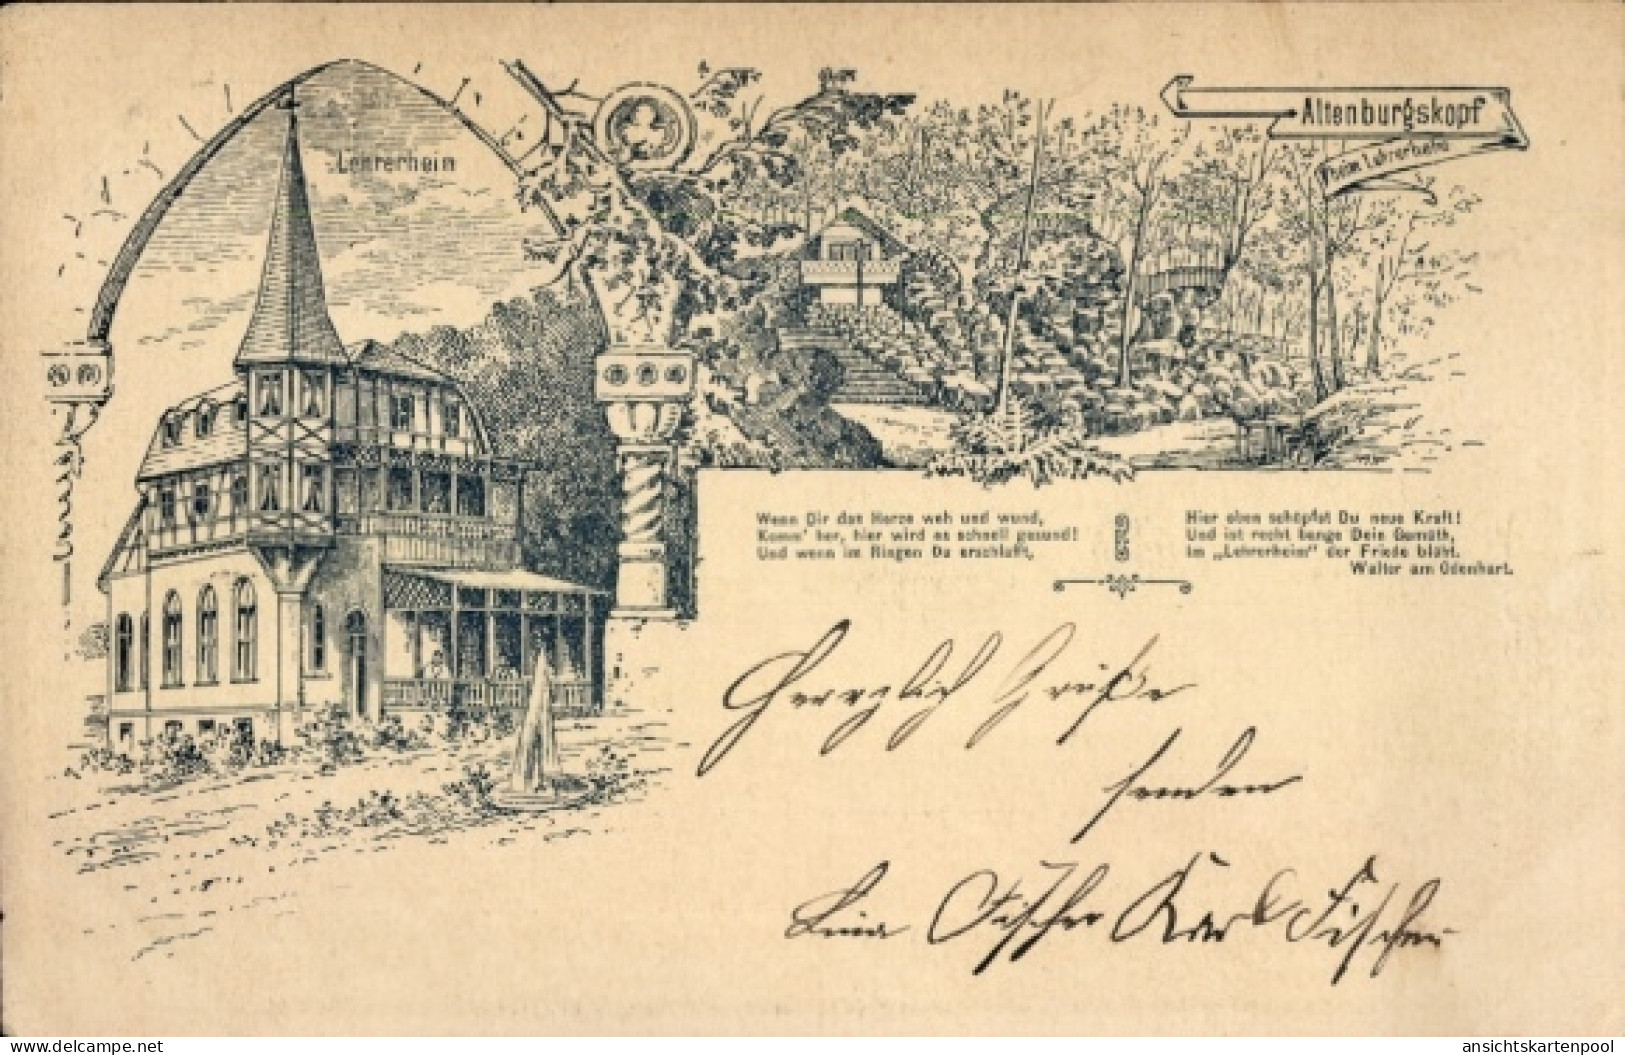 Lehrerheim
Altenburgskopf
beim Lehrerheim
Wenn Dir das Herze weh und wund,
Komm' her, hier wird es schnell gesund!
Und wenn im Ringen Du erschlafft,
Hier oben schöpfst Du neue Kraft!
Und ist recht bange Dein Gemüth,
Im „Lehrerheim" der Friede blüht.
Walter am Odenhart.
Herzlich Grüße
senden
Lina Fischer Karl Fischer
delcampe.net
ansichtskartenpool